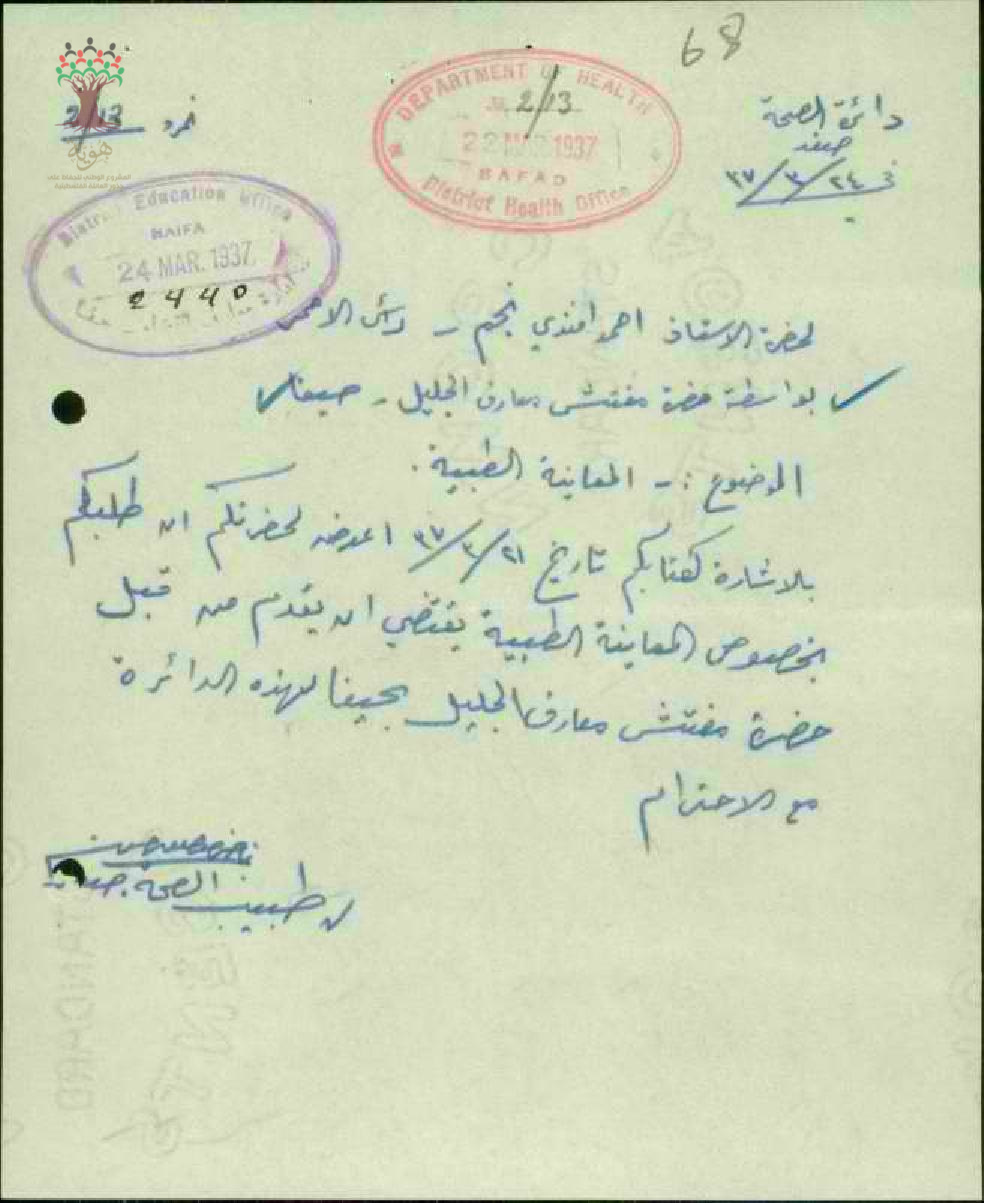 68
دائرة الصحة
صفد
في ٢٤/٣/٣٧
نمرو 2/13
هوية
DEPARTMENT OF HEALTH
No. 2/13
22 MAR 1937
SAFAD
District Health Office
District Education Office
HAIFA
24 MAR. 1937
2440
لحضرة الاستاذ احمد افندي نجم - راس الاحمر
بواسطة حضرة مفتش معارف الجليل - حيفا
الموضوع :- المعاينة الطبية .
بالاشارة لكتابكم تاريخ ٢١/٣/٣٧ اعرض لحضرتكم ان طلبكم
بخصوص المعاينة الطبية يقتضي ان يقدم من قبل
حضرة مفتش معارف الجليل بحيفا لهذه الدائرة
مع الاحترام
طبيب الصحة صفد
STANDARD